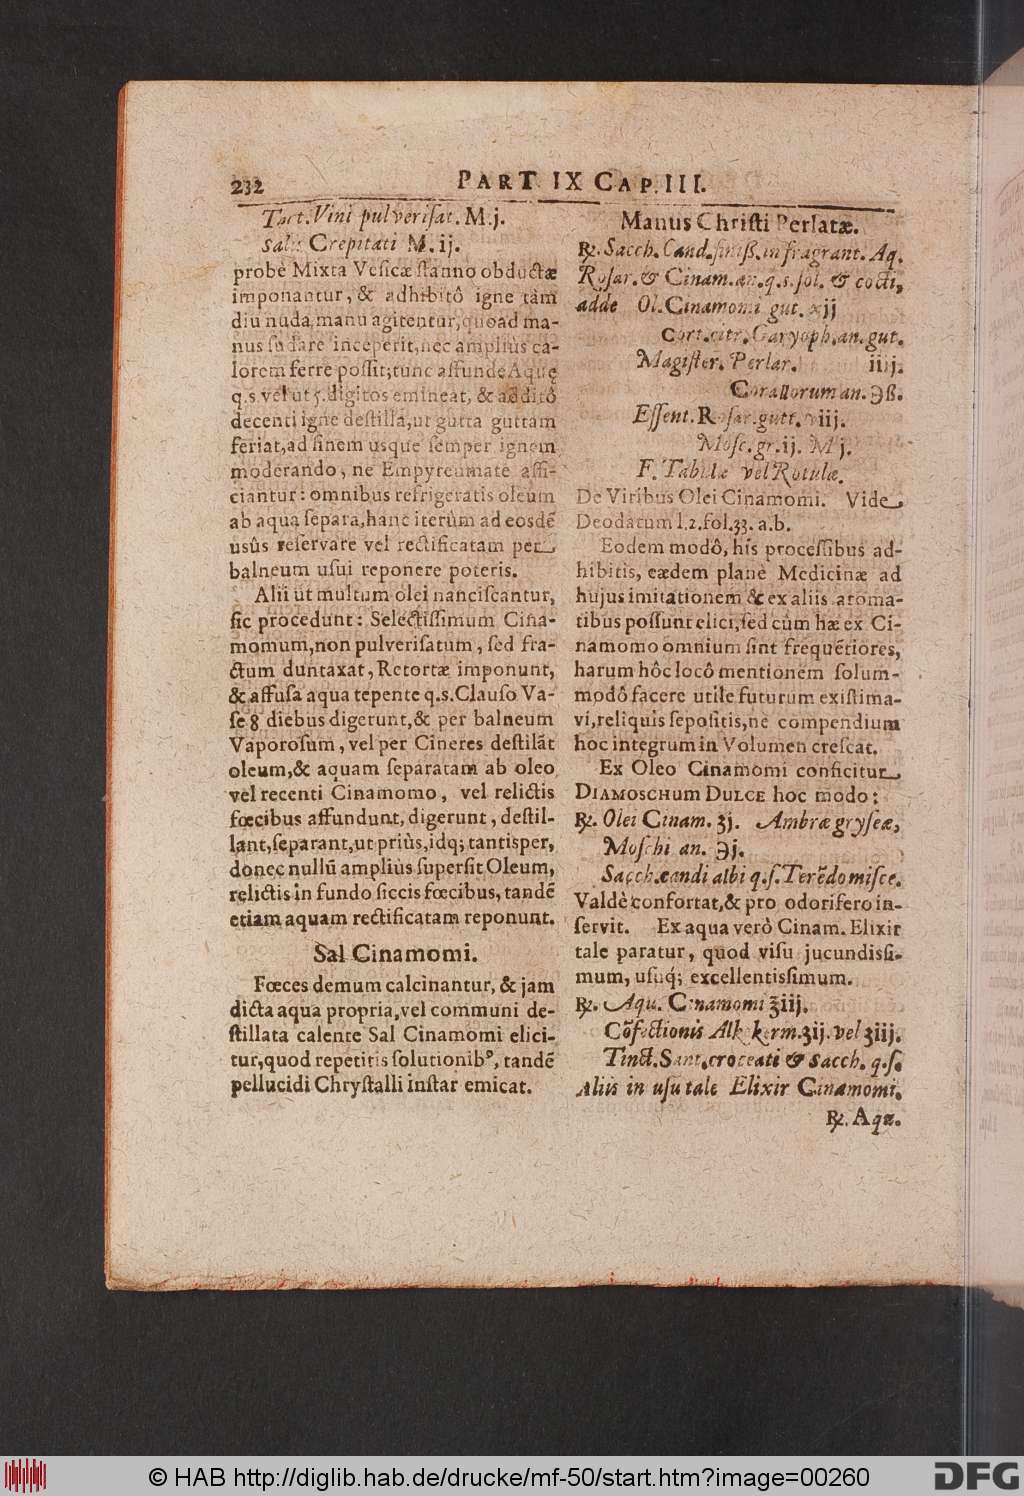 232
PART IX CAP. III.
Tart. Vini pulverisat. M.j.
Salis Crepitati M. ij.
probè Mixta Vesicæ stanno obductæ
imponantur, & adhibitô igne tàm
diu nuda manu agitentur, quoad ma-
nus sudare inceperit, nec ampliùs ca-
lorem ferre possit; tunc affunde Aquę
q.s. vel ut 5. digitos emineat, & additô
decenti igne destilla, ut gutta guttam
feriat, ad finem usque semper ignem
moderando, ne Empyreumate affi-
ciantur: omnibus refrigeratis oleum
ab aqua separa, hanc iterùm ad eosdē
usûs reservare vel rectificatam per
balneum usui reponere poteris.
Alii ut multum olei nanciscantur,
sic procedunt: Selectissimum Cina-
momum, non pulverisatum, sed fra-
ctum duntaxat, Retortæ imponunt,
& affusa aqua tepente q.s. Clauso Va-
se 8 diebus digerunt, & per balneum
Vaporosum, vel per Cineres destilāt
oleum, & aquam separatam ab oleo
vel recenti Cinamomo, vel relictis
fœcibus affundunt, digerunt, destil-
lant, separant, ut priùs, idq; tantisper,
donec nullū ampliùs supersit Oleum,
relictis in fundo siccis fœcibus, tandē
etiam aquam rectificatam reponunt.
Sal Cinamomi.
Fœces demum calcinantur, & jam
dicta aqua propria, vel communi de-
stillata calente Sal Cinamomi elici-
tur, quod repetitis solutionibꝰ, tandē
pellucidi Chrystalli instar emicat.
Manus Christi Perlatæ.
℞. Sacch. Cand. finiß. in fragrant. Aq.
Rosar. & Cinam. an. q.s. sol. & cocti,
adde Ol. Cinamomi gut. xij
Cort. citr. Garyoph. an. gut.
Magister. Perlar. iiij.
Corallorum an. ℈ß.
Essent. Rosar. gutt. viij.
Mosc. gr. ij. M j.
F. Tabulæ vel Rotulæ.
De Viribus Olei Cinamomi. Vide
Deodatum l.2. fol. 33. a.b.
Eodem modô, his processibus ad-
hibitis, eædem planè Medicinæ ad
hujus imitationem & ex aliis aroma-
tibus possunt elici, sed cùm hæ ex Ci-
namomo omnium sint frequētiores,
harum hôc locô mentionem solum-
modô facere utile futurum existima-
vi, reliquis sepositis, ne compendium
hoc integrum in Volumen crescat.
Ex Oleo Cinamomi conficitur
DIAMOSCHUM DULCE hoc modo:
℞. Olei Cinam. ʒj. Ambræ gryseæ,
Moschi an. ℈j.
Sacch. candi albi q.s. Terēdo misce.
Valdè confortat, & pro odorifero in-
servit. Ex aqua verò Cinam. Elixir
tale paratur, quod visu jucundissi-
mum, usuq; excellentissimum.
℞. Aqu. Cinamomi ℥iij.
Cōfectionis Alkekerm. ʒij. vel ʒiij.
Tinct. Sant. croceati & Sacch. q.s.
Aliis in usu tale Elixir Cinamomi.
℞. Aqæ.
© HAB http://diglib.hab.de/drucke/mf-50/start.htm?image=00260
DFG